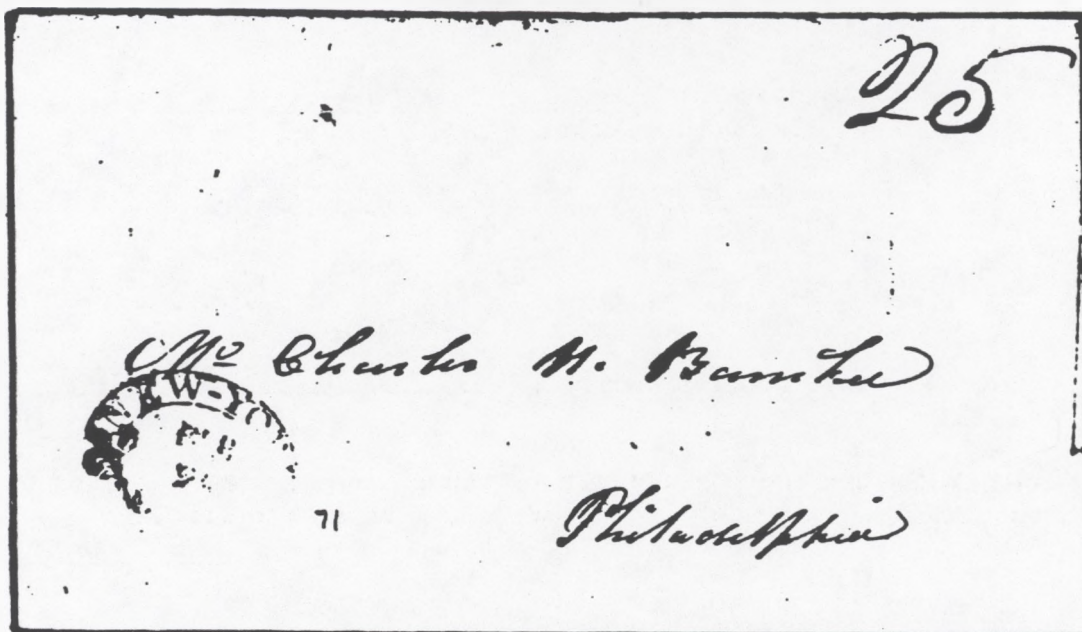 25
Mr Charles N. Bancker
NEW-YO
71
Philadelphia